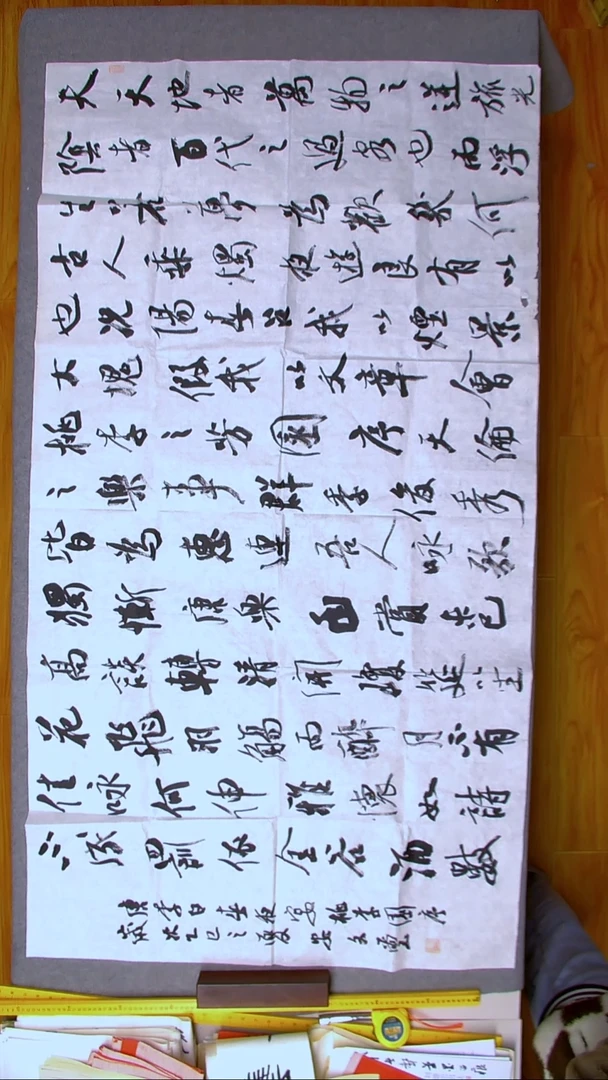 夫天地者萬物之逆旅光
陰者百代之過客也而浮
生若夢為歡幾何
古人秉燭夜遊良有以
也況陽春召我以煙景
大塊假我以文章會
桃李之芳園序天倫
之樂事群季俊秀
皆為惠連吾人咏歌
獨慚康樂幽賞未已
高談轉清開瓊筵以坐
花飛羽觴而醉月不有
佳咏何伸雅懷如詩
不成罰依金谷酒數
唐李白春夜宴桃李園序
歲次乙巳之夏